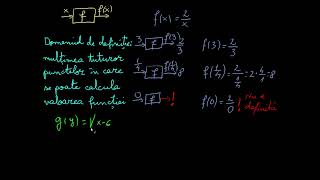 x f f(x)
f(x) = 2/x
Domeniul de definiție
mulțimea tuturor
punctelor în care
se poate calcula
valoarea funcției
3 f f(3) 2/3
f(3) = 2/3
1/4 f f(1/4) 8
f(1/4) = 2/(1/4) = 2·4/1 = 8
0 f !
f(0) = 2/0 ! Nu e
definită
g(y) = √x-6